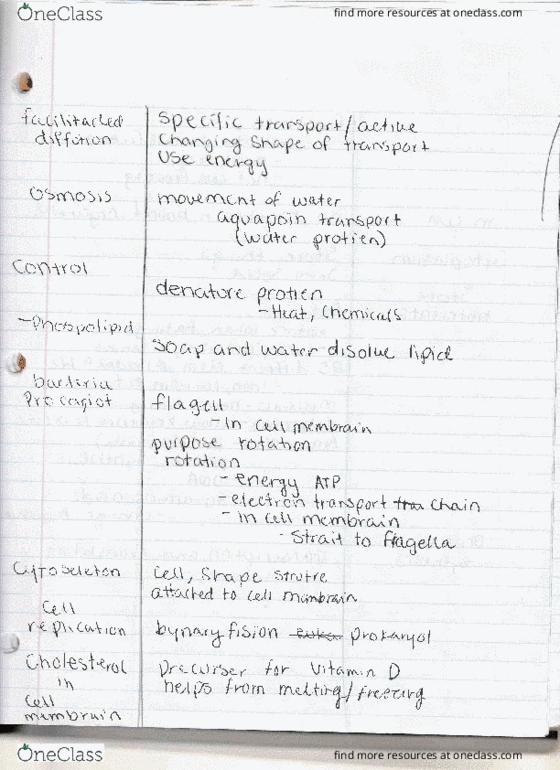 OneClass
find more resources at oneclass.com
facilitacted specific transport/active
diffution changing shape of transport
use energy
osmosis movement of water
aquapoin transport
(water protien)
Control
denature protien
-Heat, Chemicals
-Phospolipid
soap and water disolve lipid
bacteria
Procagiot flagell
-In cell membrain
purpose rotation
rotation
- energy ATP
- electron transport chain
- in cell membrain
- Strait to flagella
Cytoskeleton cell, shape strutre
attached to cell membrain
Cell
replication bynary fision prokaryol
Cholesterol precurser for Vitamin D
in helps from melting/freezing
cell
membrain
OneClass
find more resources at oneclass.com